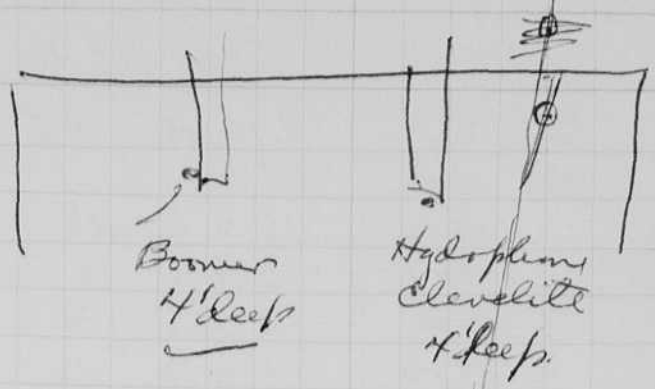 Boomer
4' deep
Hydophone
Clevelite
4' deep.